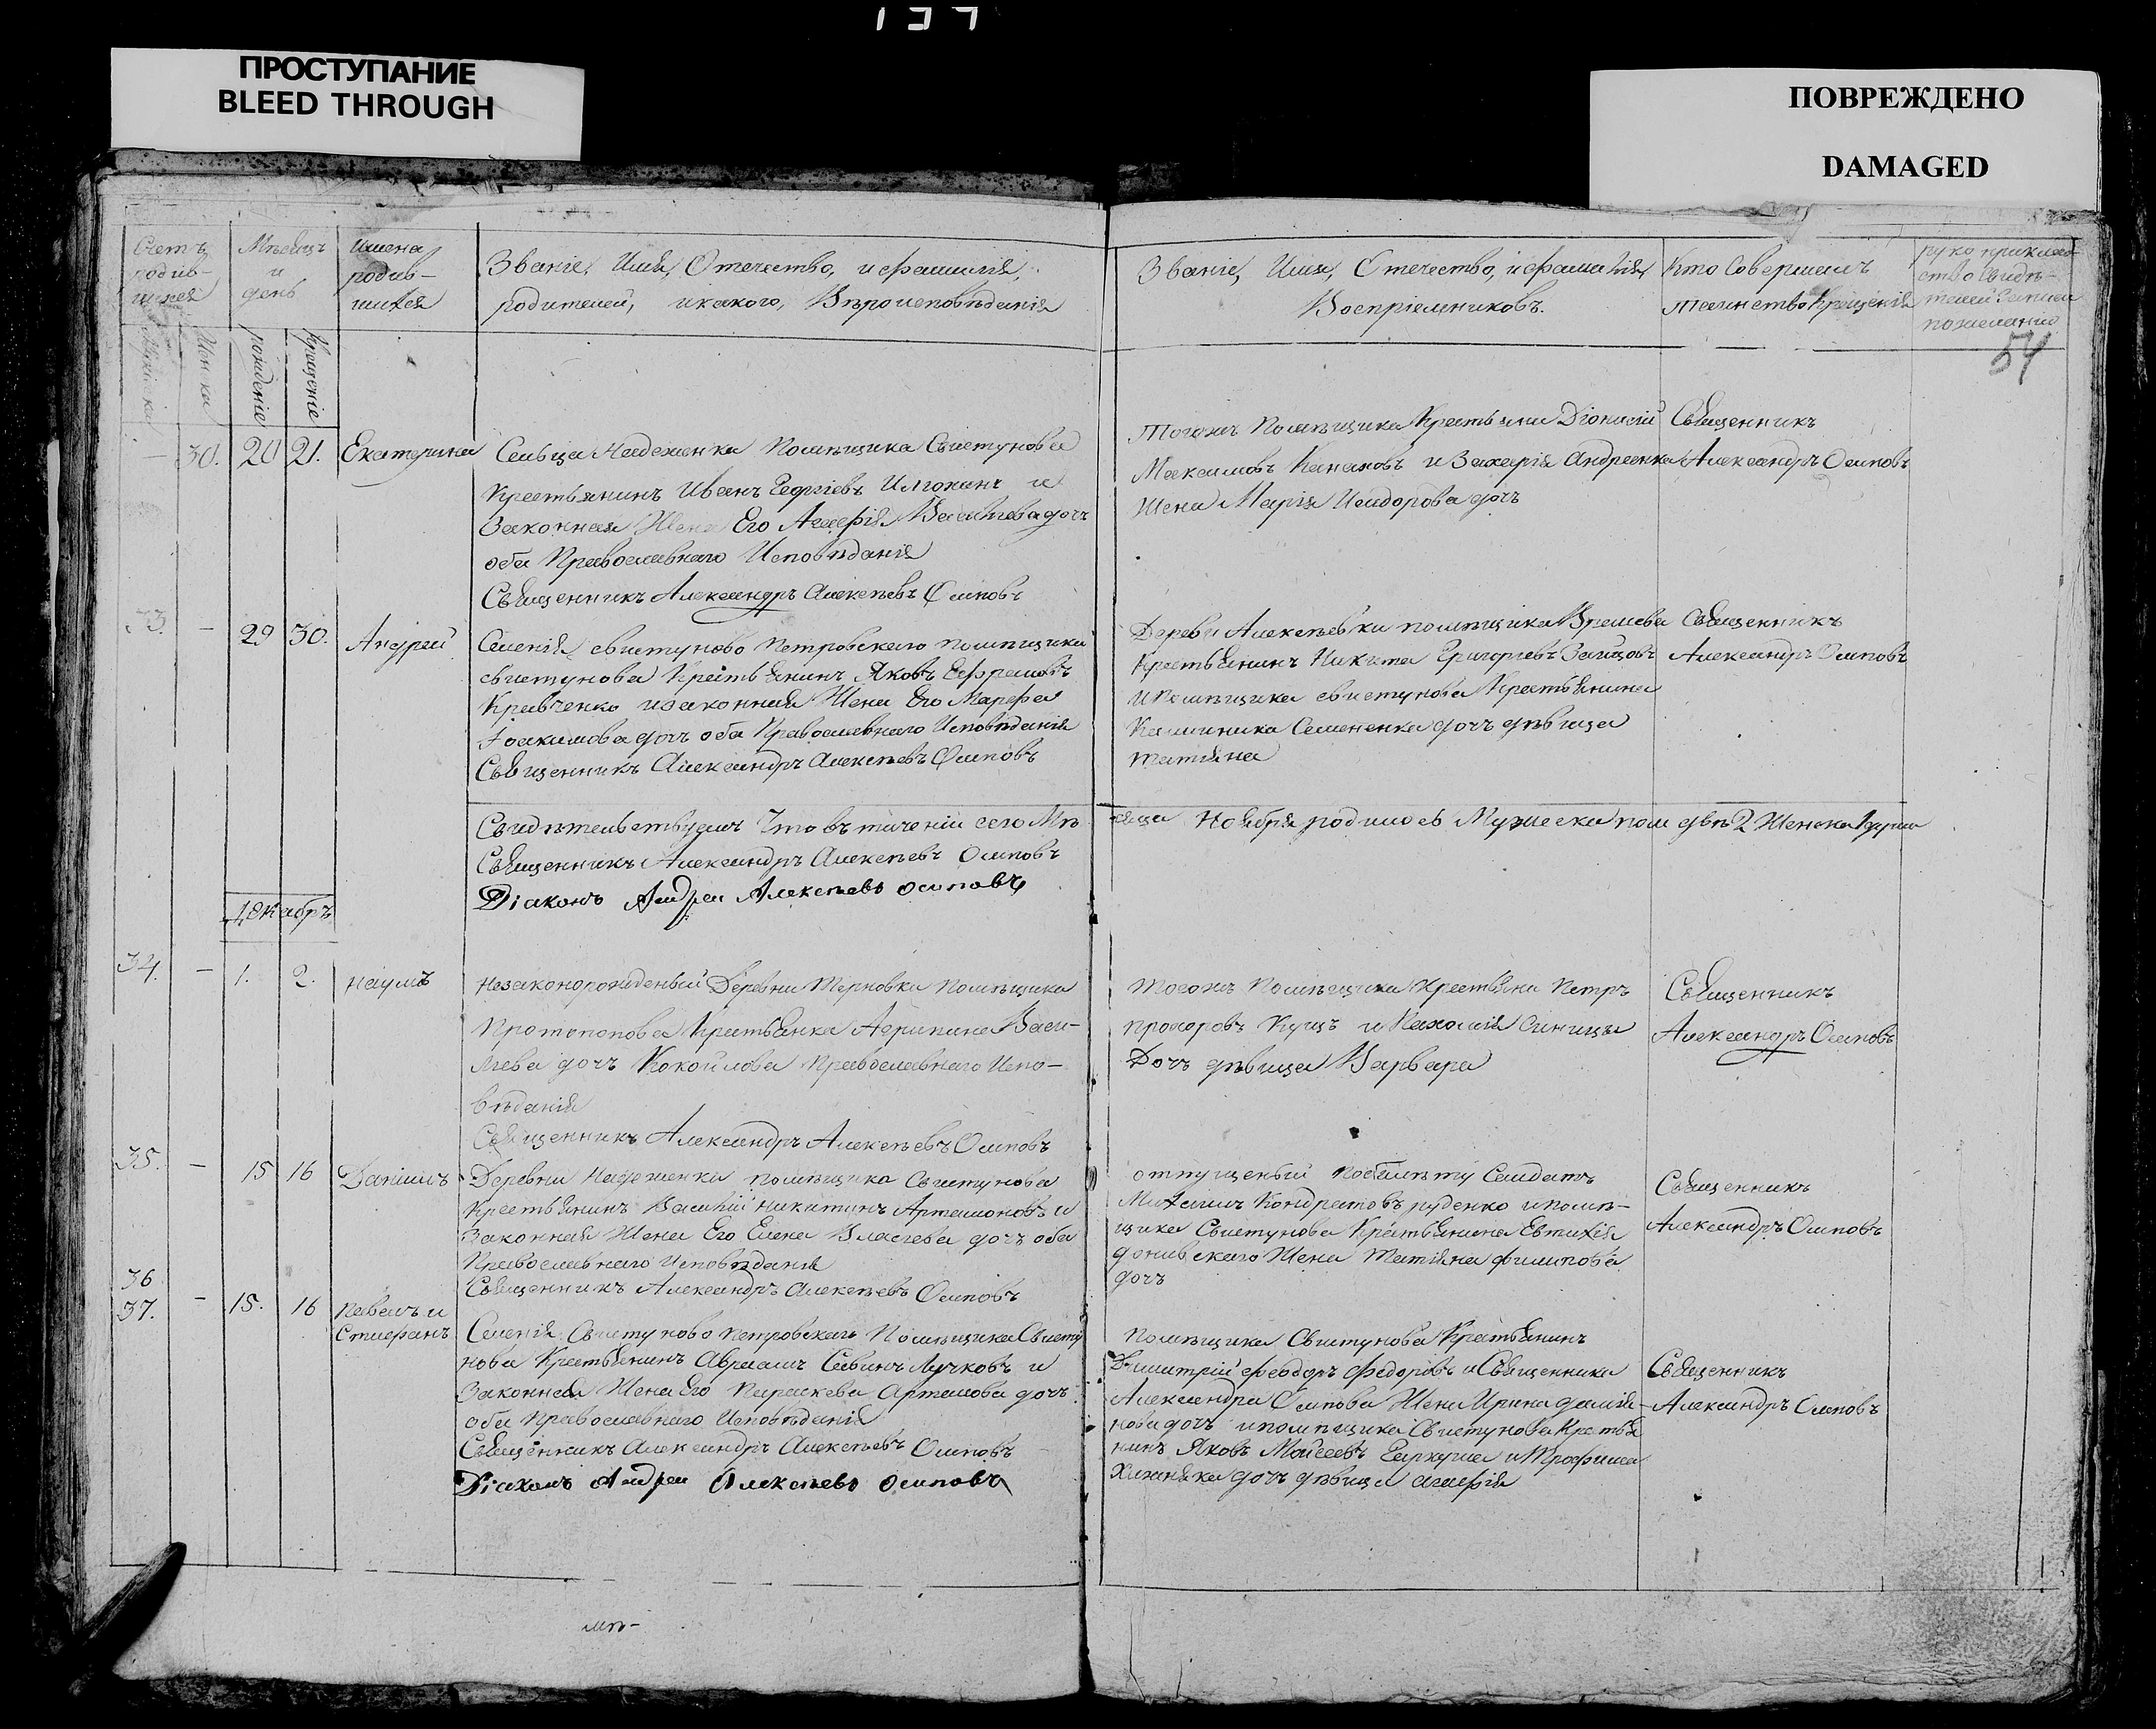 137
ПРОСТУПАНИЕ
BLEED THROUGH
ПОВРЕЖДЕНО
DAMAGED
Счетъ родив-шихся
Мѣсяцъ и день
Имена родив-шихся
Званіе, Имя, Отечество, и фамилія,
родителей, и какого, Вѣроисповѣданія
Званіе, Имя, Отечество, и фамилія
Воспріемниковъ.
Кто Совершалъ
таинство крещенія
рукоприклад-
ство Свидѣ-
телей записи
по желанію
рожденіе
крещеніе
54
— 30. 20 21. Екатерина
Сельца Надеженки Помѣщика Свистунова
Крестьянинъ Иванъ Георгіевъ и
Законная Жена Его Агафія дочь
оба Православнаго Исповѣданія
Священникъ Александръ Алексѣевъ Осиповъ
Тогожъ Помѣщика Крестьяни Діонисій
Максимовъ и Захарія Андреенка
Жена Марія Исидорова дочь
Священникъ
Александръ Осиповъ
33. — 29 30. Андрей
Селенія свистуново Петровскаго помѣщика
свистунова Крестьянинъ Яковъ Ефремовъ
Кравченко и законная Жена Его Марфа
Іоакимова дочь оба Православнаго Исповѣданія
Священникъ Александръ Алексѣевъ Осиповъ
Деревни Алексѣевки помѣщика
Крестьянинъ Никита Григорьевъ Зайцовъ
и Помѣщика свистунова Крестьянина
Семененка дочь дѣвица
татіяна
Священникъ
Александръ Осиповъ
Свидѣтельствуемъ Что въ теченіи сего Мѣ
сяца Ноября родилось Мужеска пола двѣ 2 Женска 1 душа
Священникъ Александръ Алексѣевъ Осиповъ
Діаконъ Андрей Алексѣевъ Осиповъ
Декабрь
34. — 1. 2. Наумъ
Незаконорожденый Деревни Терновки Помѣщика
Протопопова Крестьянка Агрипина Васи-
льева дочь Православнаго Испо-
вѣданія
Священникъ Александръ Алексѣевъ Осиповъ
Тогожъ Помѣщика Крестьяни Петръ
Прохоровъ Куцъ и Пахомія Синицы
Дочь дѣвица Варвара
Священникъ
Александръ Осиповъ
35. — 15 16 Даніилъ
Деревни Надеженки помѣщика Свистунова
Крестьянинъ Василій Никитинъ Артемоновъ и
Законная Жена Его Елена Власіева дочь оба
Православнаго Исповѣданія
Священникъ Александръ Алексѣевъ Осиповъ
отпущеный по билѣту Салдатъ
Михаилъ Кондратовъ руденко и помѣ-
щика Свистунова Крестьянина Евтихія
Жена Татіяна филипова
дочь
Священникъ
Александръ Осиповъ
36
37. — 15. 16 Павелъ и
Стиефанъ
Селенія Свистуново Петровскаго Помѣщика Свисту
нова Крестьянинъ Авраамъ Савинъ Лучковъ и
Законная Жена Его Параскева Артемова дочь
оба Православнаго Исповѣданія
Священникъ Александръ Алексѣевъ Осиповъ
Діаконъ Андрей Алексѣевъ Осиповъ
Помѣщика Свистунова Крестьянинъ
Димитрій Феодоръ Федоровъ и Священника
Александра Осипова Жена Ирина даміа-
нова дочь и помѣщика Свистунова Крестья
нинъ Яковъ Моисеевъ и Трофима
дочь дѣвица агафія
Священникъ
Александръ Осиповъ
мѣ-